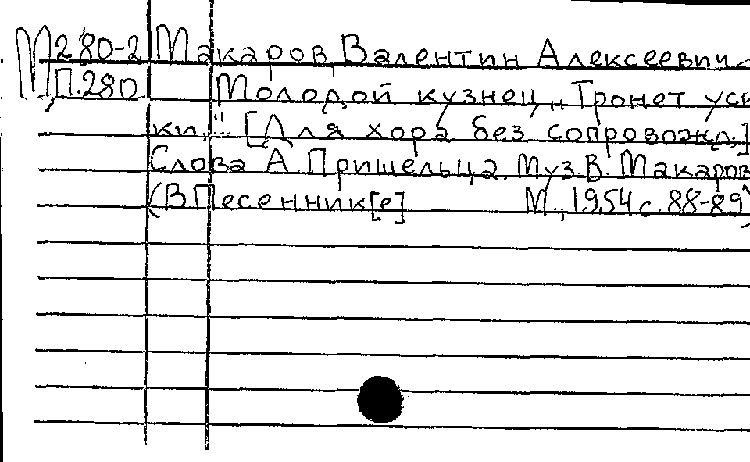 М280-2 Макаров, Валентин Алексеевич
М,П.280 Молодой кузнец „Тронет уси
ки..." [Для хора без сопровожд.]
Слова А. Пришельца. Муз. В. Макаров
(В Песенник[е] М., 1954 с. 88-89)